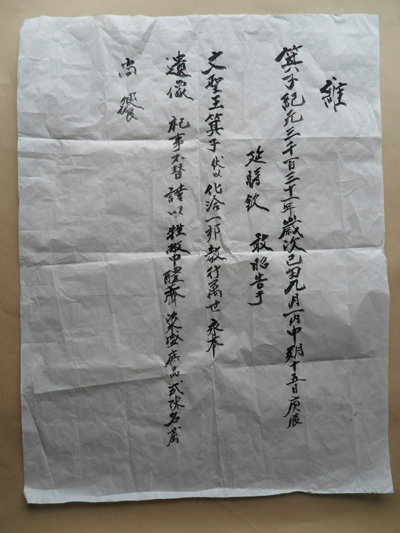 維
箕子紀元三千百三十一年歲次己酉九月 中朔十五日庚辰
 敢昭告于
文聖王箕子伏以化洽一邦教行萬世永奉
遺像祀事不替謹以牲幣醴齊粢盛庶品式陳名薦
尚饗